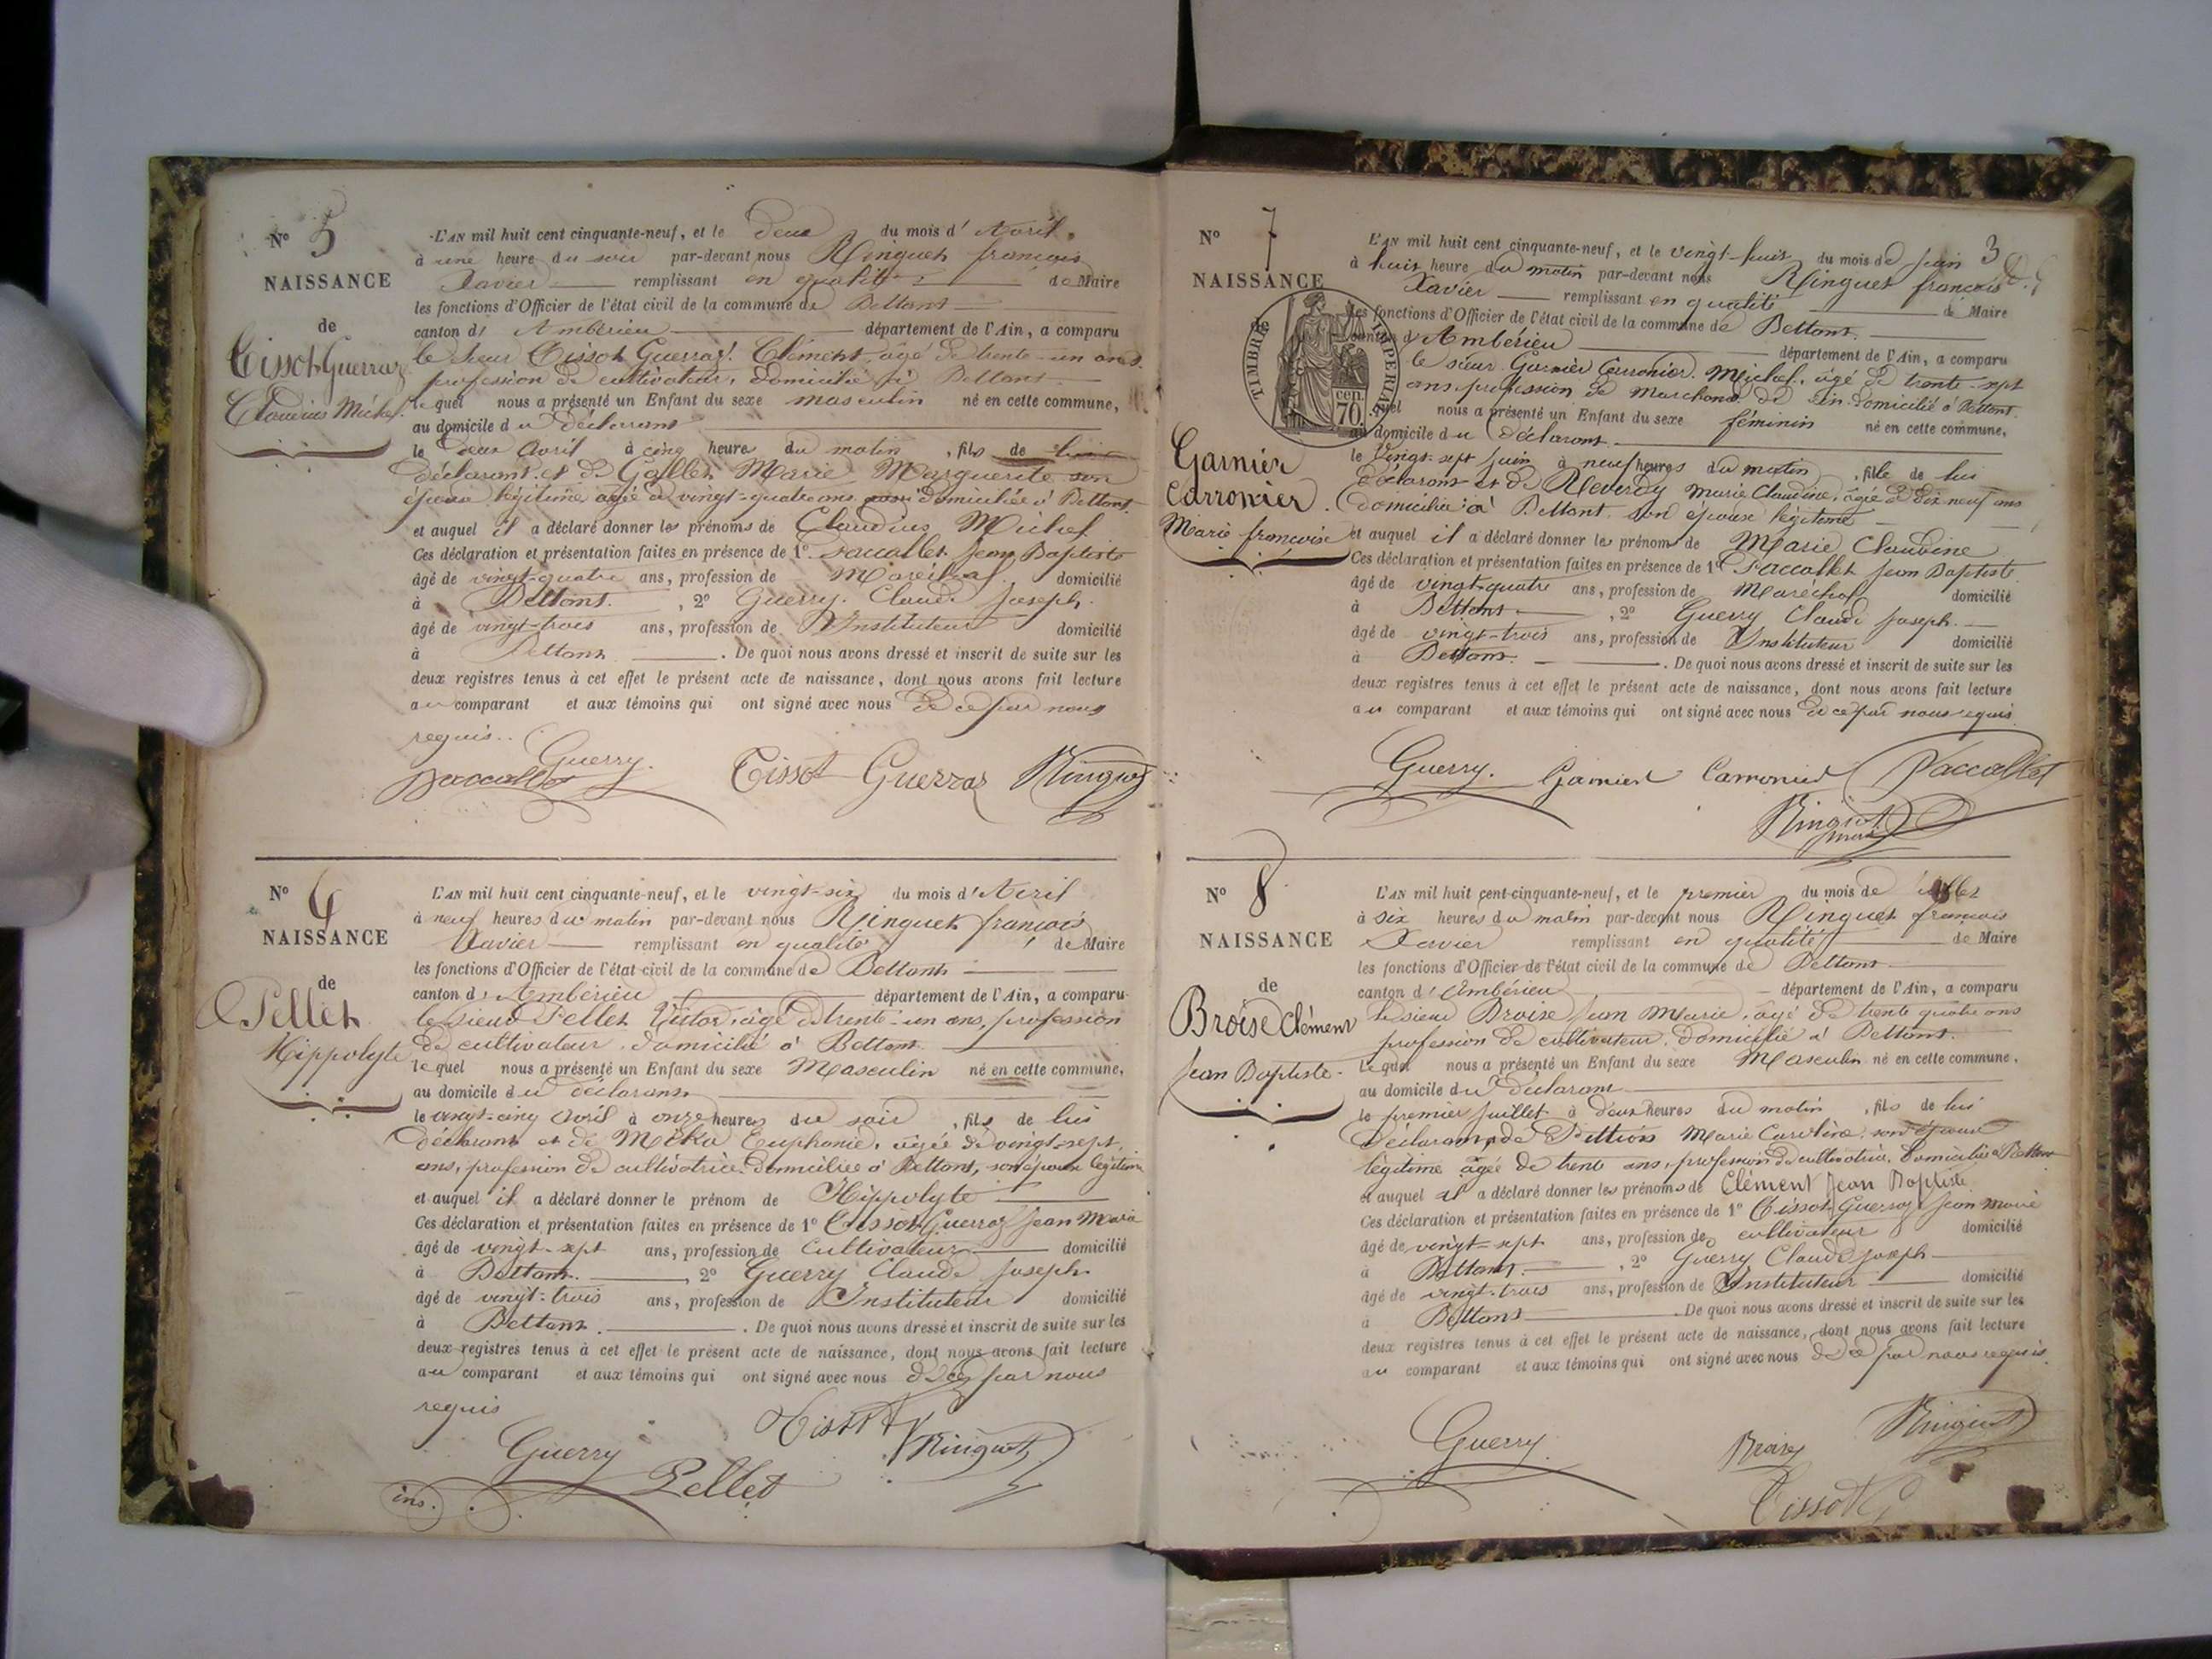 N° 5
NAISSANCE
de
Tissot Guerraz
Claudius Michel.
L'AN mil huit cent cinquante-neuf, et le deux du mois d'Avril
à une heure du soir par-devant nous Ringuet françois
Xavier remplissant en qualité de Maire
les fonctions d'Officier de l'état civil de la commune de Bettant
canton d'Ambérieu département de l'Ain, a comparu
le sieur Tissot Guerraz Clément, âgé de trente-un ans.
profession de cultivateur, domicilié à Bettant
lequel nous a présenté un Enfant du sexe masculin né en cette commune,
au domicile du déclarant
le deux avril à cinq heure du matin, fils de lui
déclarant et de Marie Marguerite son
épouse légitime âgée de vingt-quatre ans domiciliée à Bettant
et auquel il a déclaré donner les prénoms de Claudius Michel
Ces déclaration et présentation faites en présence de 1° Paccallet Jean Baptiste
âgé de vingt-quatre ans, profession de Maréchal domicilié
à Bettant. , 2° Guerry Claude Joseph.
âgé de vingt-trois ans, profession de Instituteur domicilié
à Bettant . De quoi nous avons dressé et inscrit de suite sur les
deux registres tenus à cet effet le présent acte de naissance, dont nous avons fait lecture
au comparant et aux témoins qui ont signé avec nous de ce par nous
requis..
Guerry.
Paccallet Tissot Guerraz Ringuet
N° 6
NAISSANCE
de
Pellet
Hippolyte
L'AN mil huit cent cinquante-neuf, et le vingt-six du mois d'Avril
à neuf heures du matin par-devant nous Ringuet françois
Xavier remplissant en qualité de Maire
les fonctions d'Officier de l'état civil de la commune de Bettant
canton d'Ambérieu département de l'Ain, a comparu
le sieur Pellet Victor, âgé de trente-un ans, profession
de cultivateur, domicilié à Bettant.
lequel nous a présenté un Enfant du sexe Masculin né en cette commune,
au domicile du déclarant
le vingt-cinq avril à onze heures du soir, fils de lui
déclarant et de Euphonie, âgée de vingt-sept
ans, profession de cultivatrice domiciliée à Bettant, son épouse légitime
et auquel il a déclaré donner le prénom de Hippolyte
Ces déclaration et présentation faites en présence de 1° Tissot Guerraz Jean Marie
âgé de vingt-sept ans, profession de Cultivateur domicilié
à Bettant. , 2° Guerry Claude Joseph
âgé de vingt-trois ans, profession de Instituteur domicilié
à Bettant. . De quoi nous avons dressé et inscrit de suite sur les
deux registres tenus à cet effet le présent acte de naissance, dont nous avons fait lecture
au comparant et aux témoins qui ont signé avec nous de ce par nous
requis
Tissot G
Guerry Ringuet
Pellet
ins.
3
N° 7
NAISSANCE
de
TIMBRE IMPERIAL
70 cen.
Garnier
Carronier.
Marie françoise
L'AN mil huit cent cinquante-neuf, et le vingt-huit du mois de juin
à huit heure du matin par-devant nous Ringuet françois
Xavier remplissant en qualité de Maire
les fonctions d'Officier de l'état civil de la commune de Bettant.
canton d'Ambérieu département de l'Ain, a comparu
le sieur Garnier Carronier. Michel, âgé de trente-sept
ans, profession de Marchand de vin domicilié à Bettant.
quel nous a présenté un Enfant du sexe féminin né en cette commune,
au domicile du déclarant.
le vingt-sept juin à neuf heures du matin, fille de lui
déclarant et de Reverdy Marie Claudine, âgée de dix neuf ans
domiciliée à Bettant son épouse légitime
et auquel il a déclaré donner les prénoms de Marie Claudine
Ces déclaration et présentation faites en présence de 1° Paccallet Jean Baptiste
âgé de vingt-quatre ans, profession de Maréchal domicilié
à Bettant , 2° Guerry Claude Joseph.
âgé de vingt-trois ans, profession de Instituteur domicilié
à Bettant. . De quoi nous avons dressé et inscrit de suite sur les
deux registres tenus à cet effet le présent acte de naissance, dont nous avons fait lecture
au comparant et aux témoins qui ont signé avec nous de ce par nous requis
Guerry. Garnier Carronier Paccallet
Ringuet
N° 8
NAISSANCE
de
Broise Clément
Jean Baptiste.
L'AN mil huit cent cinquante-neuf, et le premier du mois de juillet
à six heures du matin par-devant nous Ringuet françois
Xavier remplissant en qualité de Maire
les fonctions d'Officier de l'état civil de la commune de Bettant
canton d'Ambérieu département de l'Ain, a comparu
le sieur Broise Jean Marie, âgé de trente quatre ans
profession de cultivateur, domicilié à Bettant.
lequel nous a présenté un Enfant du sexe Masculin né en cette commune,
au domicile du déclarant
le premier juillet à deux heures du matin, fils de lui
déclarant, de Marie Caroline, son épouse
légitime âgée de trente ans, profession de cultivatrice, domiciliée à Bettant
et auquel il a déclaré donner les prénoms de Clément Jean Baptiste
Ces déclaration et présentation faites en présence de 1° Tissot Guerraz Jean Marie
âgé de vingt-sept ans, profession de cultivateur domicilié
à Bettant. , 2° Guerry Claude Joseph
âgé de vingt-trois ans, profession de Instituteur domicilié
à Bettant . De quoi nous avons dressé et inscrit de suite sur les
deux registres tenus à cet effet le présent acte de naissance, dont nous avons fait lecture
au comparant et aux témoins qui ont signé avec nous de ce par nous requis.
Guerry. Broise Ringuet
Tissot G